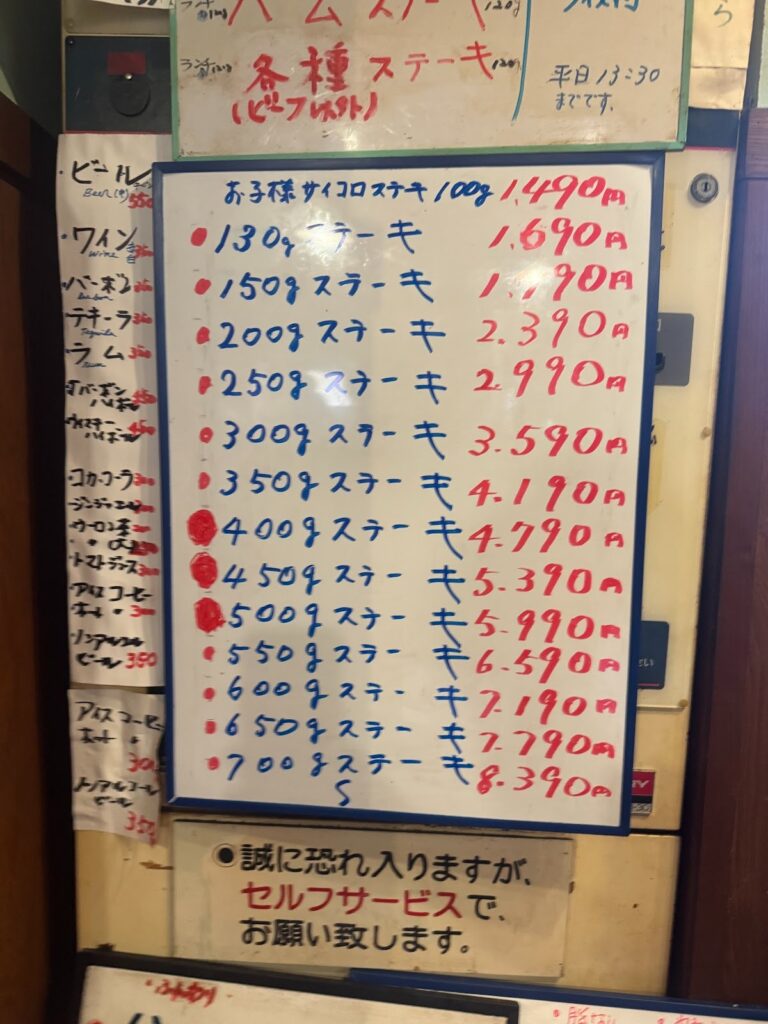 ハムステーキ 120g
ランチ 120g 各種ステーキ 120g
(ビーフ
平日13:30
までです。
お子様サイコロステーキ100g 1.490円
130gステーキ 1.690円
150gステーキ 1.790円
200gステーキ 2.390円
250gステーキ 2.990円
300gステーキ 3.590円
350gステーキ 4.190円
400gステーキ 4.790円
450gステーキ 5.390円
500gステーキ 5.990円
550gステーキ 6.590円
600gステーキ 7.190円
650gステーキ 7.790円
700gステーキ 8.390円
S
・ビール
Beer (中) 550
・ワイン
wine
・バーボン
・テキーラ 350
Tequila
・ラム 350
Rum
・バーボン
ハイボール 450
・ウィスキー
ハイボール 450
・コカ・コーラ 300
・ジンジャエール
・ウーロン茶
・トマトジュース 300
・アイスコーヒー
ホット 〃 300
・ノンアルコール
ビール 350
アイスコーヒー
ホット 〃
300
ノンアルコール
ビール
350
●誠に恐れ入りますが、
セルフサービスで、
お願い致します。